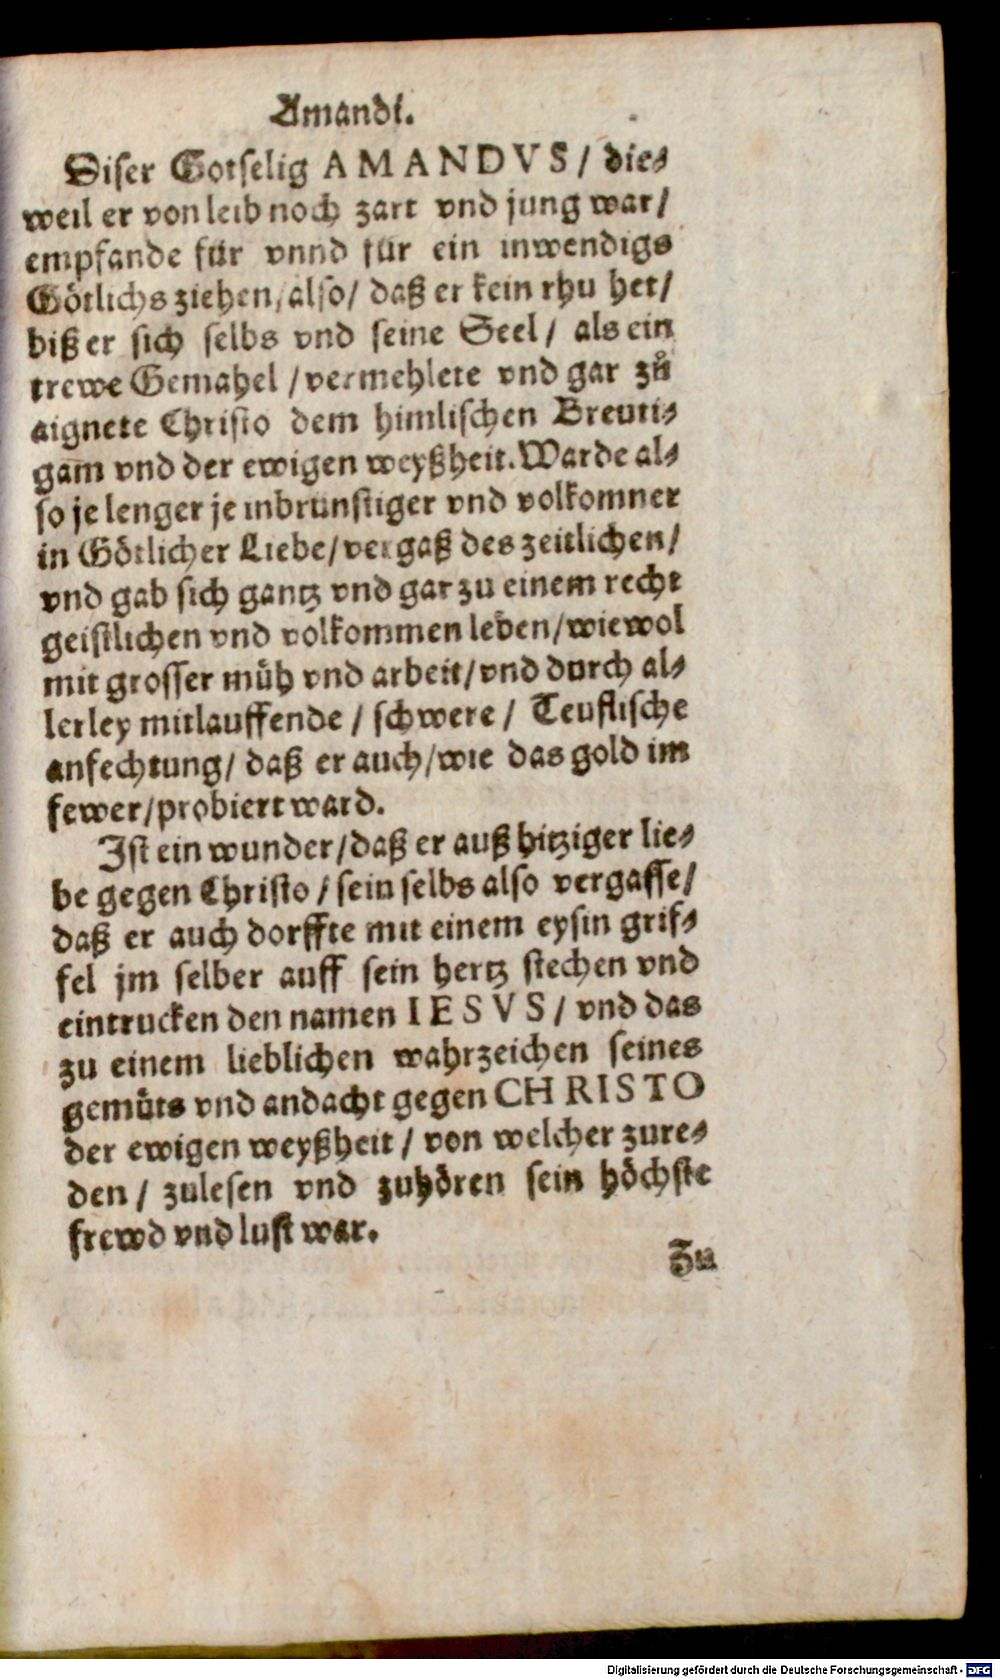 Amandi.
Diser Gotselig AMANDVS / die⸗
weil er von leib noch zart vnd jung war /
empfande für vnnd für ein inwendigs
Götlichs ziehen, also / daß er kein rhu het /
biß er sich selbs vnd seine Seel / als ein
trewe Gemahel / vermehlete vnd gar zů
aignete Christo dem himlischen Breuti⸗
gam vnd der ewigen weyßheit. Warde al⸗
so je lenger je inbrünstiger vnd volkomner
in Götlicher Liebe / vergaß des zeitlichen /
vnd gab sich gantz vnd gar zu einem recht
geistlichen vnd volkommen leben / wiewol
mit grosser müh vnd arbeit / vnd durch al⸗
lerley mitlauffende / schwere / Teuflische
anfechtung / daß er auch / wie das gold im
fewer / probiert ward.
Ist ein wunder / daß er auß hitziger lie⸗
be gegen Christo / sein selbs also vergasse /
daß er auch dorffte mit einem eysin grif⸗
fel jm selber auff sein hertz stechen vnd
eintrucken den namen IESVS / vnd das
zu einem lieblichen wahrzeichen seines
gemüts vnd andacht gegen CHRISTO
der ewigen weyßheit / von welcher zure⸗
den / zulesen vnd zuhören sein höchste
frewd vnd lust war.
Zu
Digitalisierung gefördert durch die Deutsche Forschungsgemeinschaft - DFG